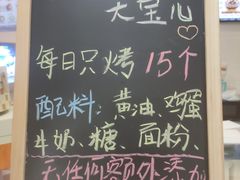 大宝儿
每日只烤15个
配料：黄油、鸡蛋
牛奶、糖、面粉、
无任何额外添加